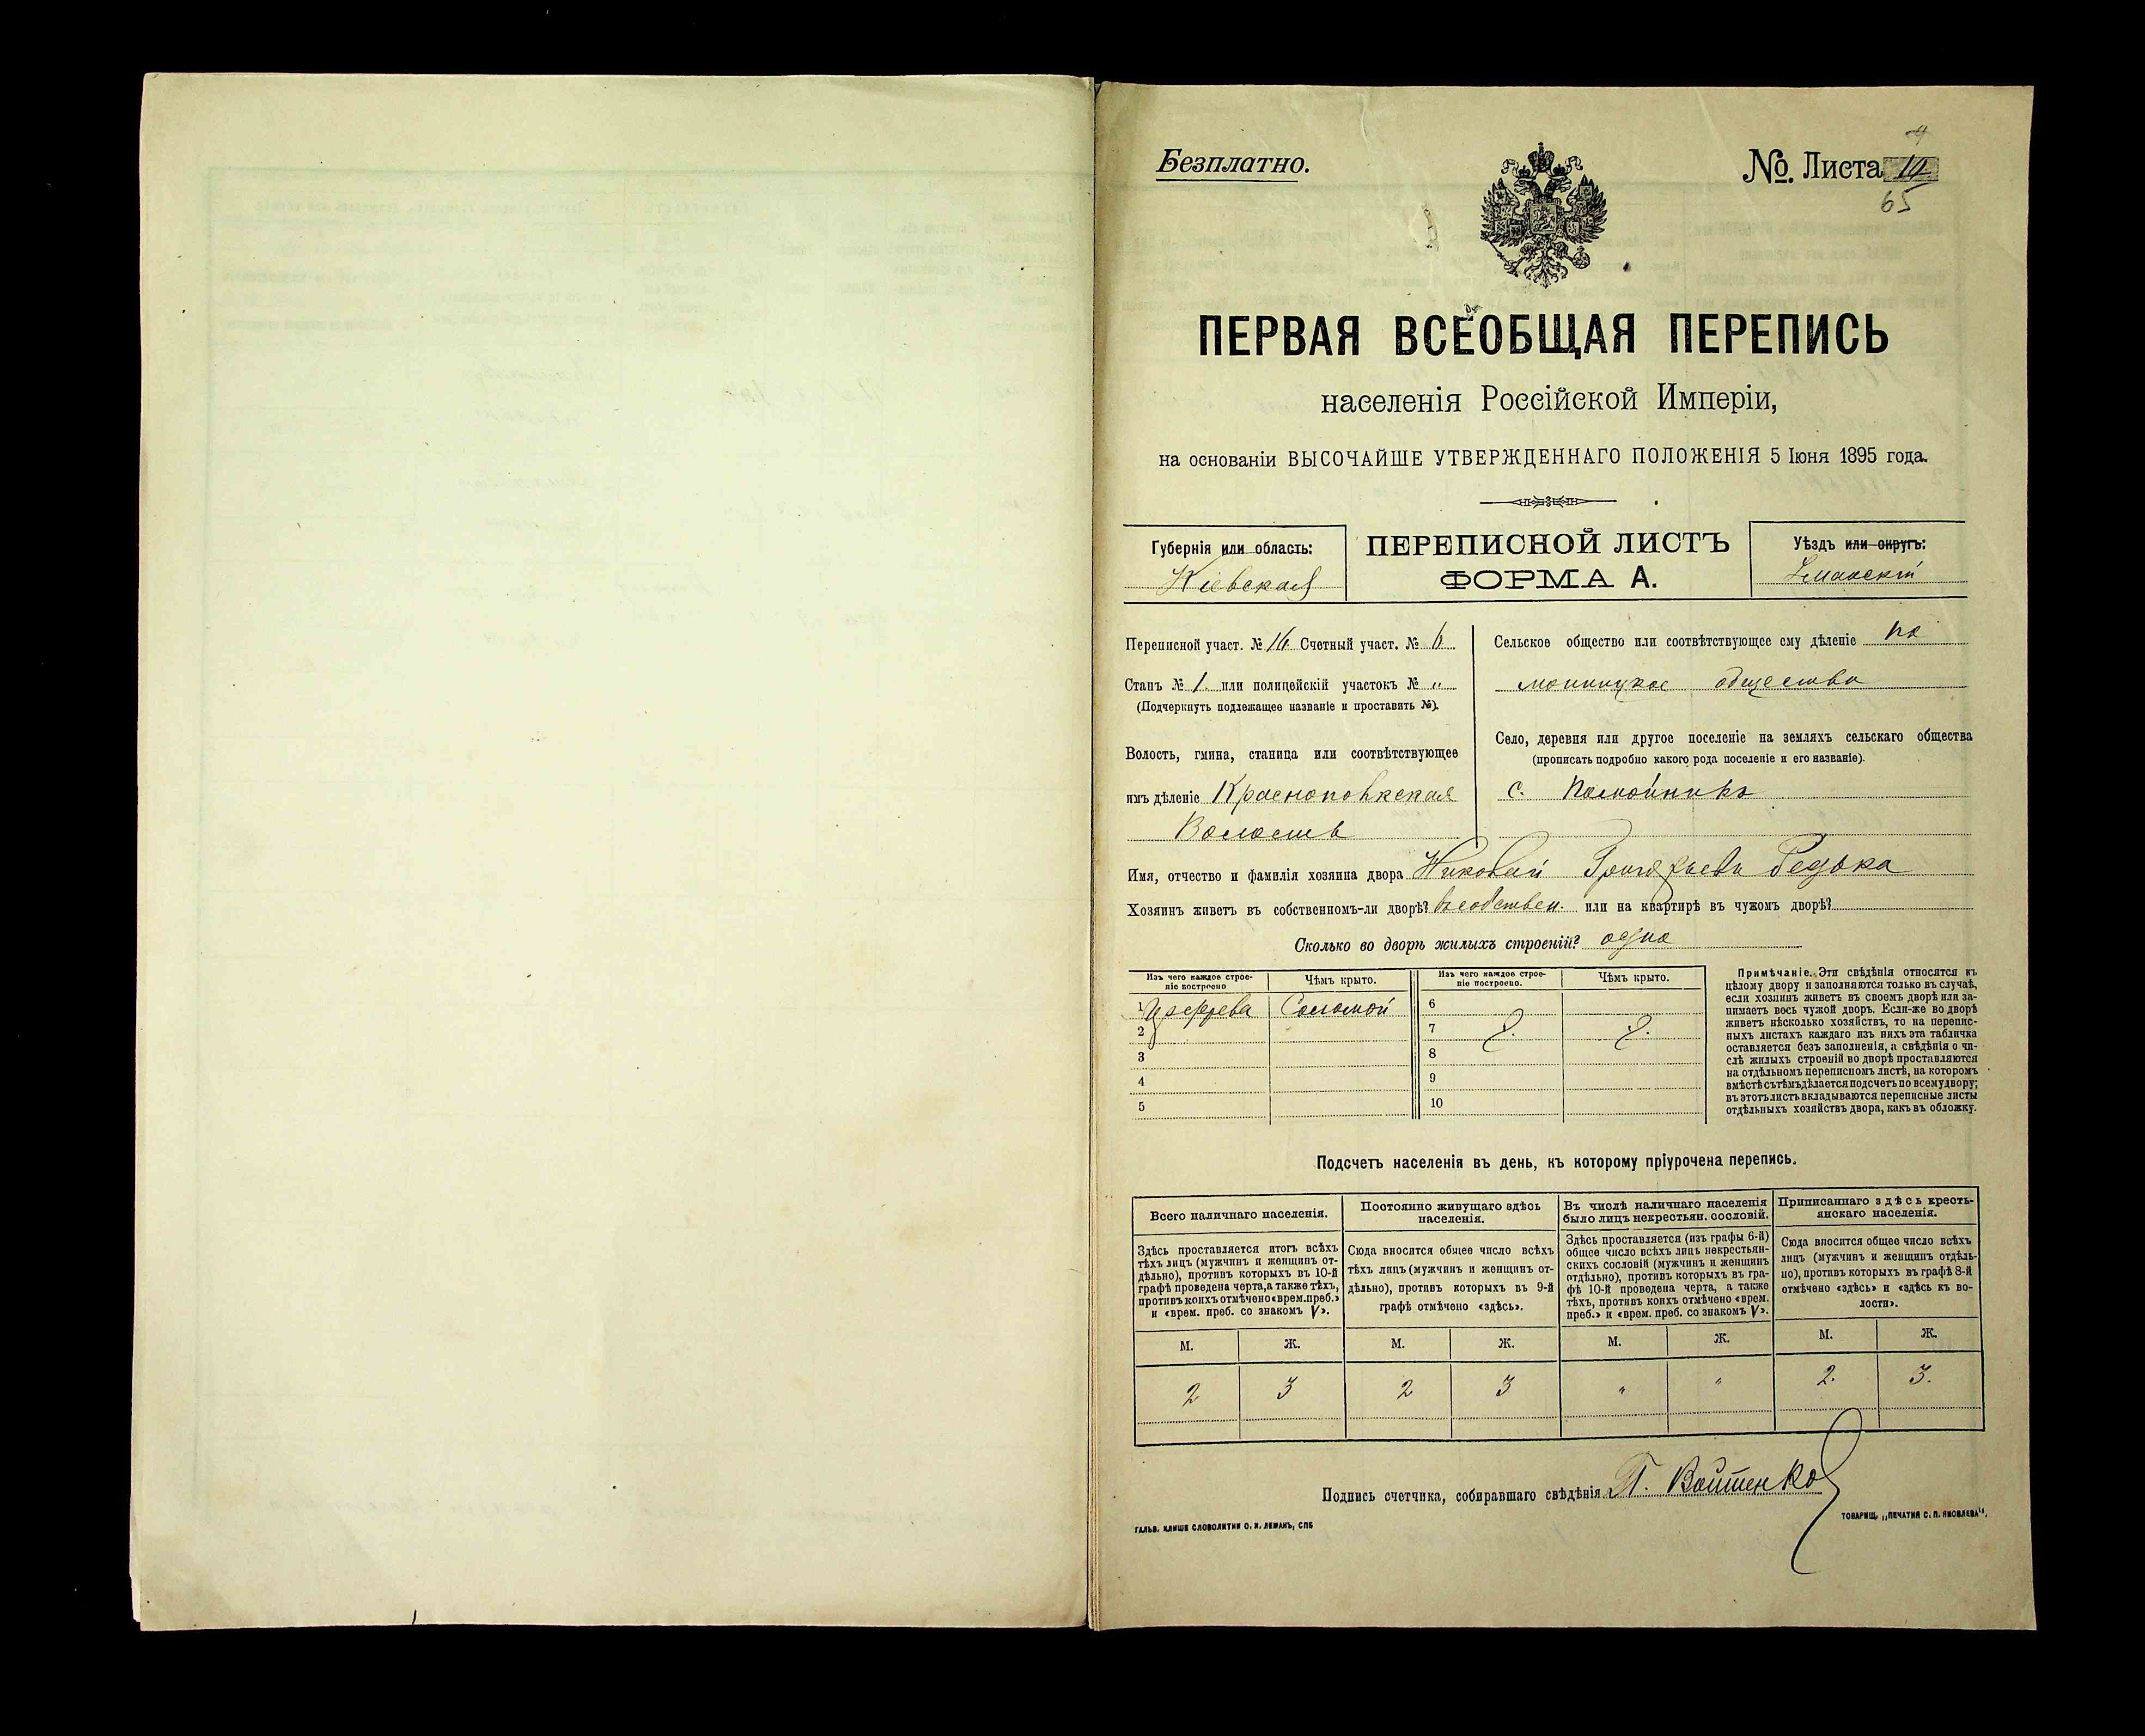 Безплатно.
№. Листа 10
65
ПЕРВАЯ ВСЕОБЩАЯ ПЕРЕПИСЬ
населенія Россійской Имперіи,
на основаніи ВЫСОЧАЙШЕ УТВЕРЖДЕННАГО ПОЛОЖЕНІЯ 5 Іюня 1895 года.
Губернія или область:
Кіевская
ПЕРЕПИСНОЙ ЛИСТЪ
ФОРМА А.
Уѣздъ или округъ:
Уманскій
Переписной участ. № 16 Счетный участ. № 6
Станъ № 1. или полицейскій участокъ № „
(Подчеркнуть подлежащее названіе и проставить №).
Волость, гмина, станица или соотвѣтствующее
имъ дѣленіе Краснопольская
Волость
Сельское общество или соотвѣтствующее ему дѣленіе По
мойницкое общество
Село, деревня или другое поселеніе на земляхъ сельскаго общества
(прописать подробно какого рода поселеніе и его названіе).
с. Помойникъ
Имя, отчество и фамилія хозяина двора Николай Григорьевъ Редька
Хозяинъ живетъ въ собственномъ-ли дворѣ? въ собствен. или на квартирѣ въ чужомъ дворѣ?
Сколько во дворѣ жилыхъ строеній? одно
Изъ чего каждое строе-
ніе построено
Чѣмъ крыто.
Изъ чего каждое строе-
ніе построено.
Чѣмъ крыто.
1 Изъ дерева Соломой
2
3
4
5
6
7
8
9
10
Примѣчаніе. Эти свѣдѣнія относятся къ
цѣлому двору и заполняются только въ случаѣ,
если хозяинъ живетъ въ своемъ дворѣ или за-
нимаетъ весь чужой дворъ. Если-же во дворѣ
живетъ нѣсколько хозяйствъ, то на перепис-
ныхъ листахъ каждаго изъ нихъ эта табличка
оставляется безъ заполненія, а свѣдѣнія о чи-
слѣ жилыхъ строеній во дворѣ проставляются
на отдѣльномъ переписномъ листѣ, на которомъ
вмѣстѣ съ тѣмъ дѣлается подсчетъ по всему двору;
въ этотъ листъ вкладываются переписные листы
отдѣльныхъ хозяйствъ двора, какъ въ обложку.
Подсчетъ населенія въ день, къ которому пріурочена перепись.
Всего наличнаго населенія.
Постоянно живущаго здѣсь
населенія.
Въ числѣ наличнаго населенія
было лицъ некрестьян. сословій.
Приписаннаго здѣсь кресть-
янскаго населенія.
Здѣсь проставляется итогъ всѣхъ
тѣхъ лицъ (мужчинъ и женщинъ от-
дѣльно), противъ которыхъ въ 10-й
графѣ проведена черта, а также тѣхъ,
противъ коихъ отмѣчено «врем. преб.»
и «врем. преб. со знакомъ V».
Сюда вносится общее число всѣхъ
тѣхъ лицъ (мужчинъ и женщинъ от-
дѣльно), противъ которыхъ въ 9-й
графѣ отмѣчено «здѣсь».
Здѣсь проставляется (изъ графы 6-й)
общее число всѣхъ лицъ некрестьян-
скихъ сословій (мужчинъ и женщинъ
отдѣльно), противъ которыхъ въ гра-
фѣ 10-й проведена черта, а также
тѣхъ, противъ коихъ отмѣчено «врем.
преб.» и «врем. преб. со знакомъ V».
Сюда вносится общее число всѣхъ
лицъ (мужчинъ и женщинъ отдѣль-
но), противъ которыхъ въ графѣ 8-й
отмѣчено «здѣсь» и «здѣсь къ во-
лости».
М. Ж. М. Ж. М. Ж. М. Ж.
2 3 2 3 „ „ 2. 3.
Подпись счетчика, собиравшаго свѣдѣнія П. Войтенко
ГАЛЬВ. КЛИШЕ СЛОВОЛИТНИ О. И. ЛЕМАНЪ, СПБ
ТОВАРИЩ. „ПЕЧАТНЯ С. П. ЯКОВЛЕВА“.